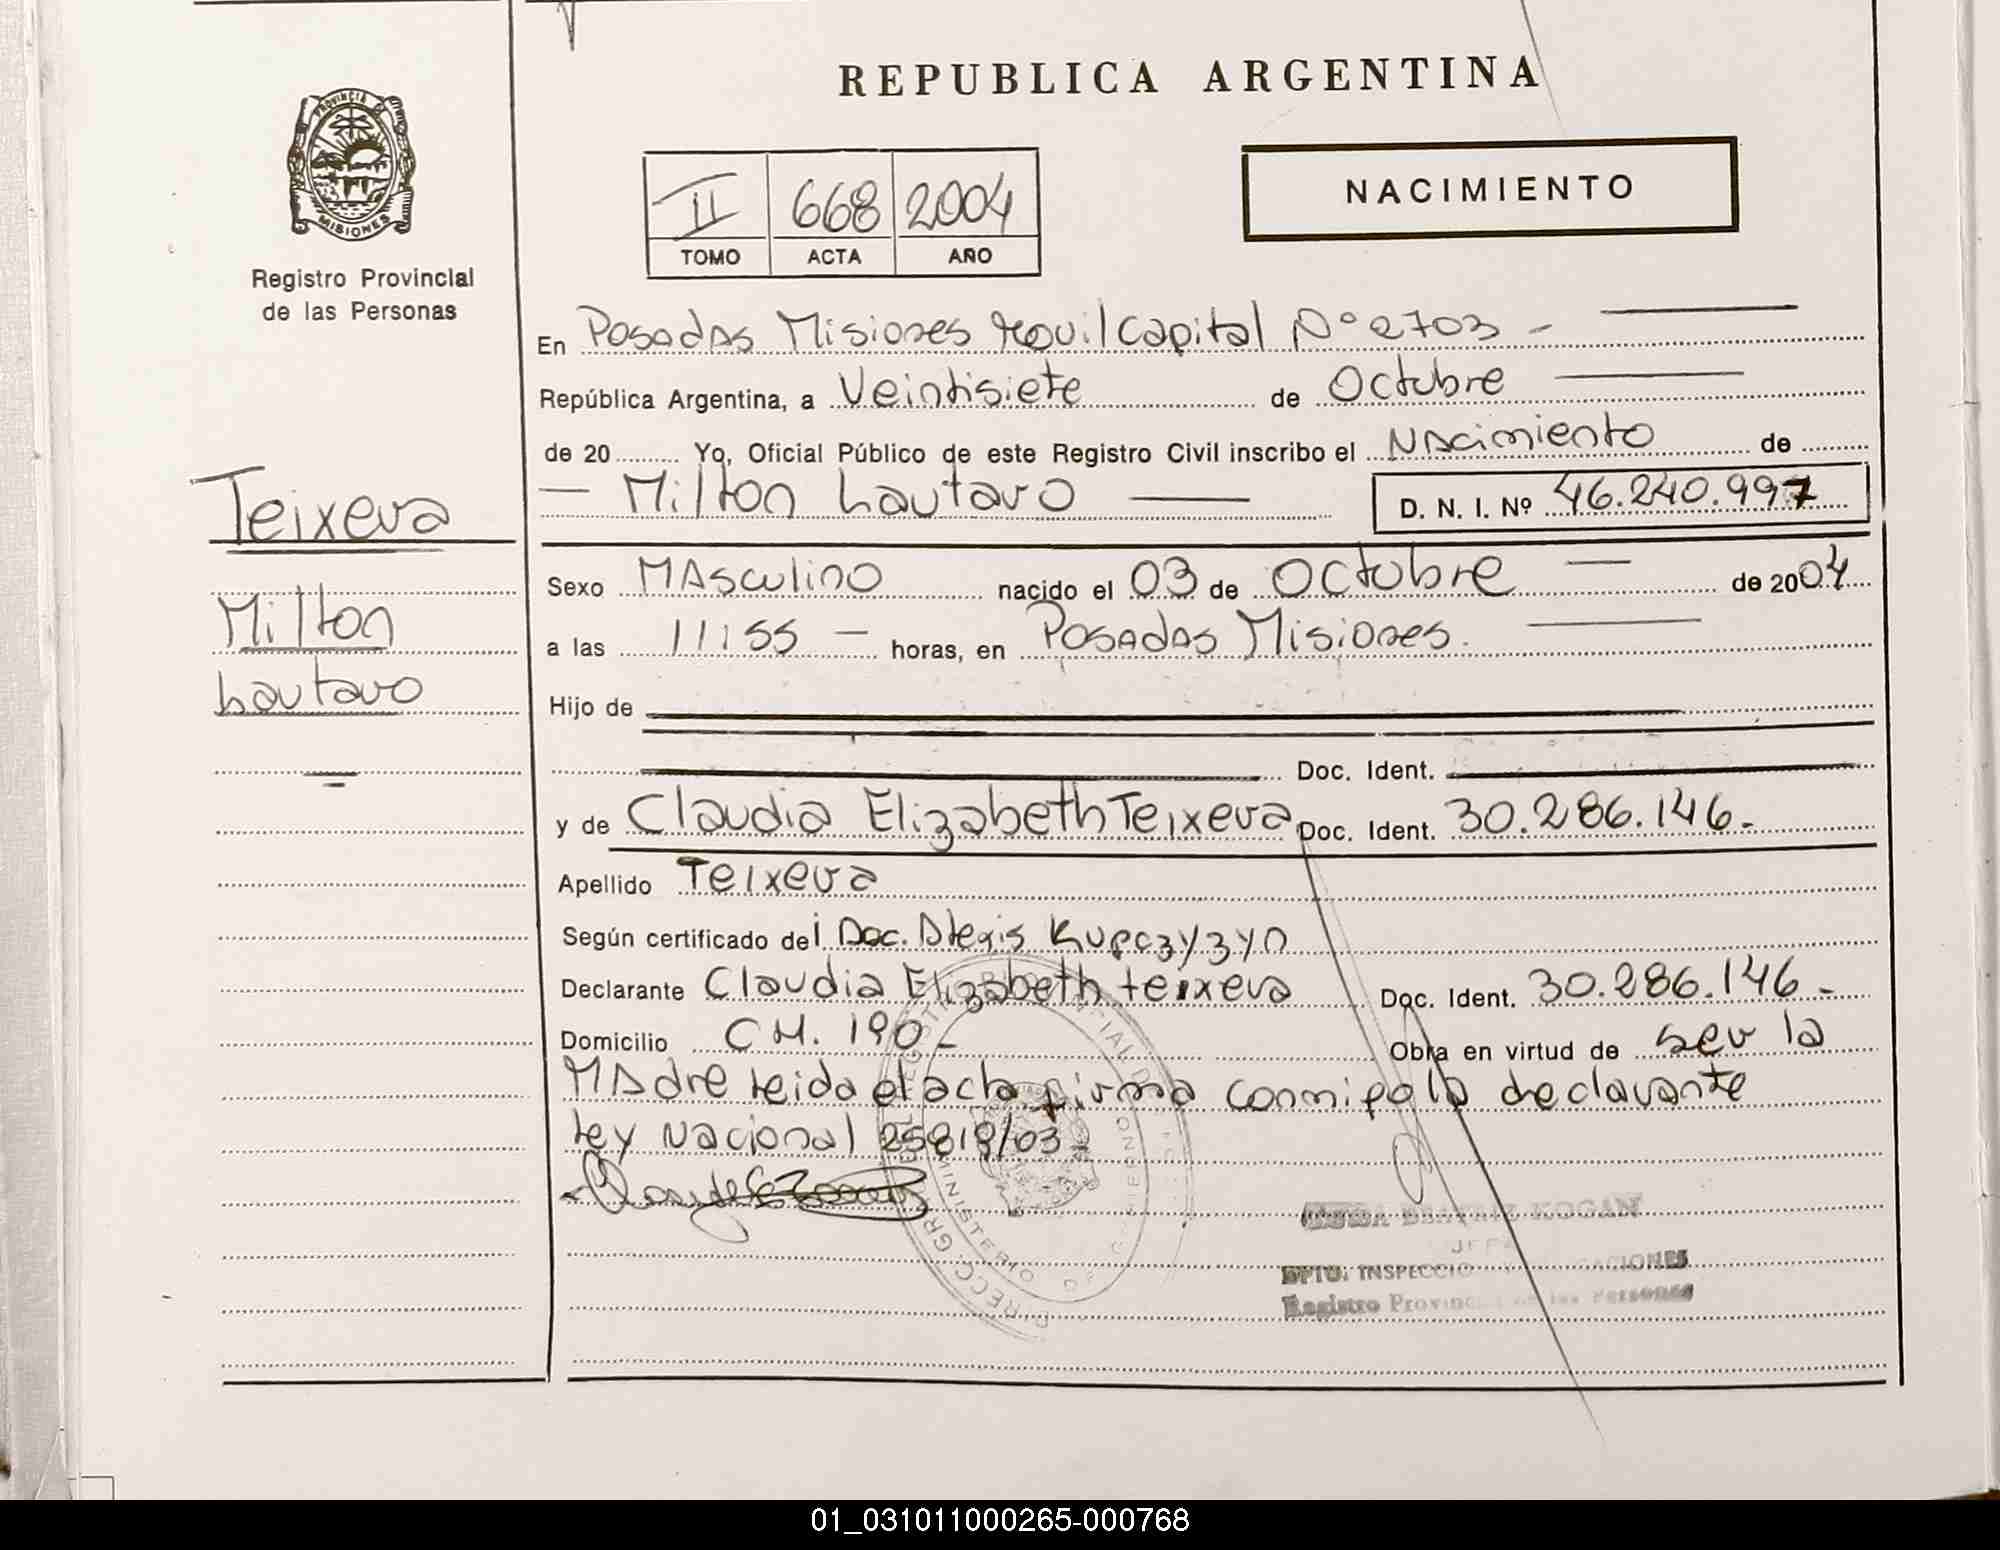 REPUBLICA ARGENTINA
PROVINCIA DE
MISIONES
Registro Provincial
de las Personas
II 668 2004
TOMO ACTA AÑO
NACIMIENTO
En Posadas Misiones Movil Capital Nº 2703 -
República Argentina, a Veintisiete de Octubre
de 20 Yo, Oficial Público de este Registro Civil inscribo el Nacimiento de
Milton Lautaro D. N. I. Nº 46.240.997
Teixera
Milton
Lautaro
Sexo Masculino nacido el 03 de Octubre de 2004
a las 11:55 - horas, en Posadas Misiones.
Hijo de
Doc. Ident.
y de Claudia Elizabeth Teixera Doc. Ident. 30.286.146.-
Apellido Teixera
Según certificado del Doc. Alexis
Declarante Claudia Elizabeth teixera Doc. Ident. 30.286.146-
Domicilio CH. 190- Obra en virtud de ser la
Madre leida el acta firma conmigo la declarante
ley Nacional 25818/03
BEATRIZ KOGAN
JEFA
DPTO. INSPECCIO
Registro Provinc de las Personas
MINISTERIO DE
01_031011000265-000768